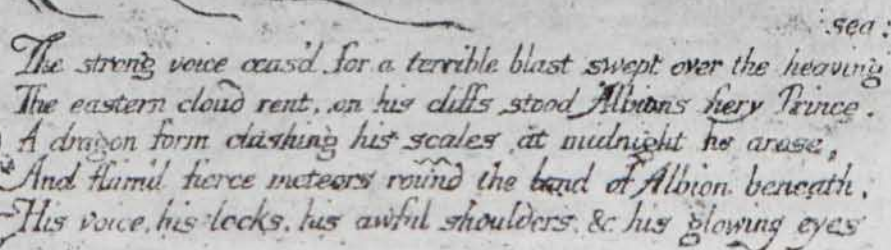 sea;
The strong voice ceas'd, for a terrible blast swept over the heaving
The eastern cloud rent, on his cliffs stood Albions fiery Prince.
A dragon form clashing his scales at midnight he arose,
And flam'd fierce meteors round the band of Albion beneath.
His voice, his locks, his awful shoulders, & his glowing eyes